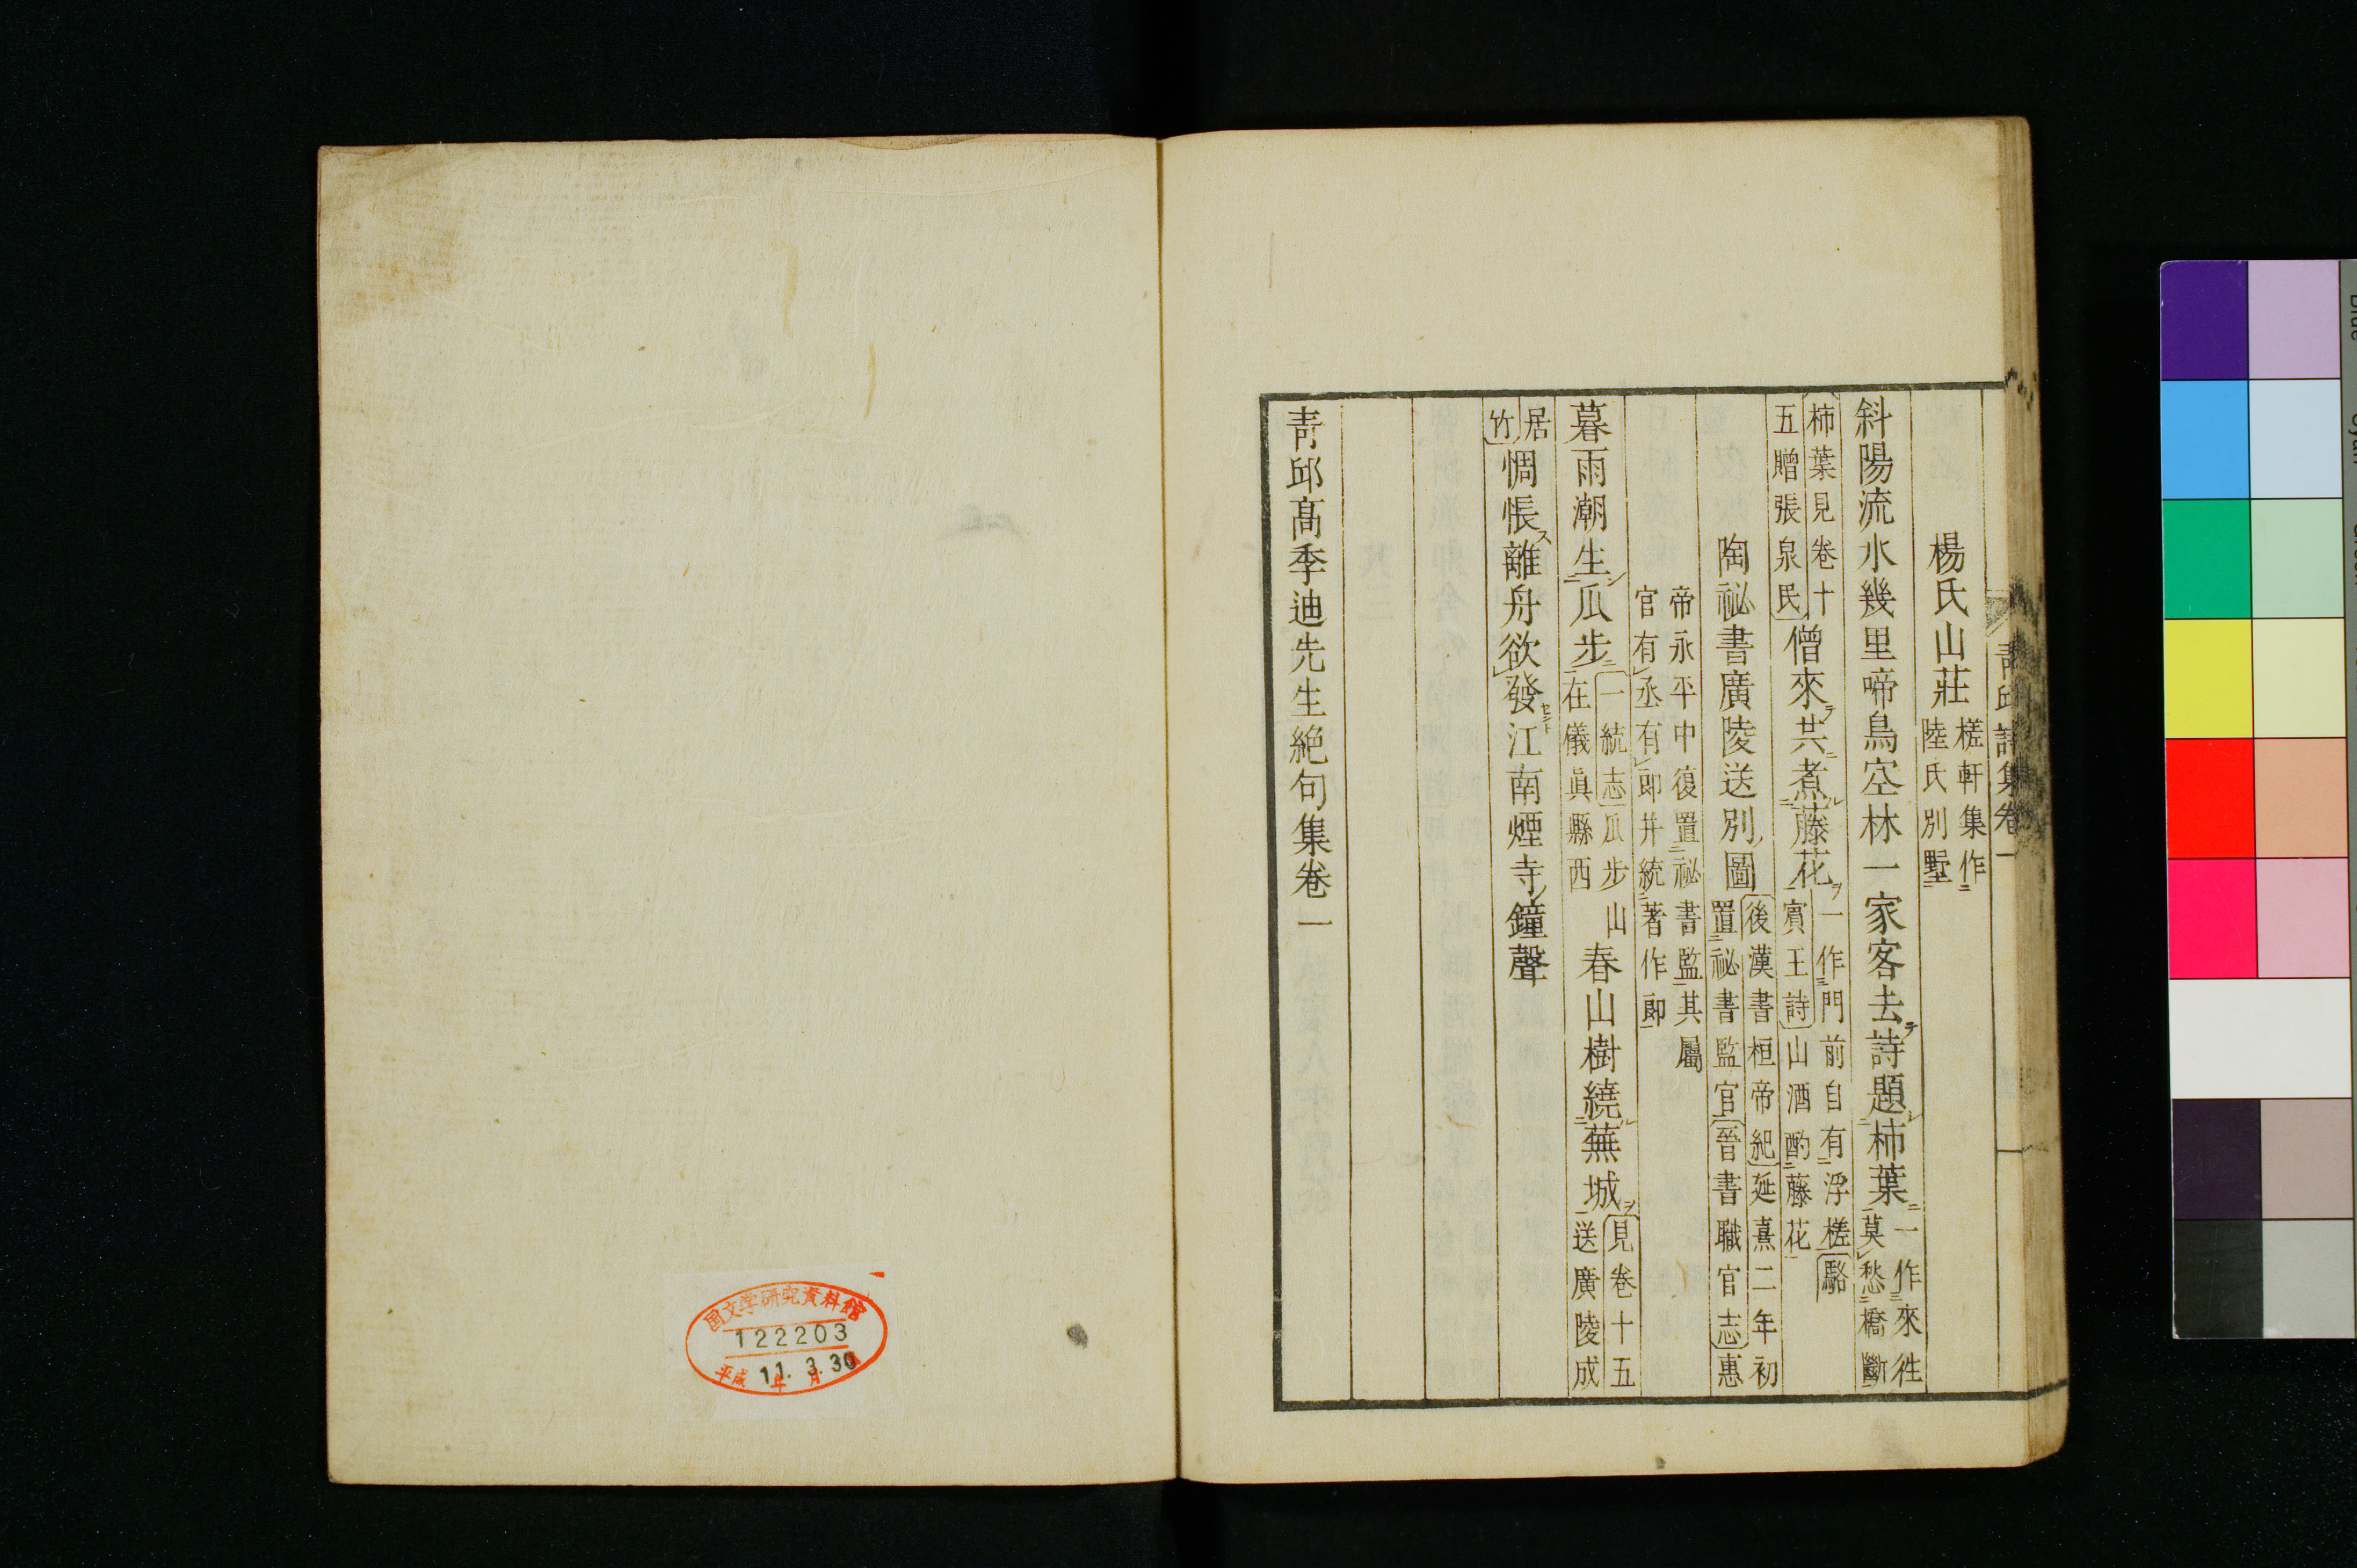 靑邱詩集卷一
楊氏山莊
槎軒集作
陸氏別墅
斜陽流水幾里啼鳥空林一家客去詩題柿葉
一作來往
莫愁橋斷
柿葉見卷十
五贈張泉民
僧來共煮藤花
一作門前自有浮槎駱
賓王詩山酒酌藤花
陶祕書廣陵送別圖
後漢書桓帝紀延熹二年初
置祕書監官晉書職官志惠
帝永平中復置祕書監其屬
官有丞有郎并統著作郎
暮雨潮生瓜步
一統志瓜步山
在儀眞縣西
春山樹繞蕪城
見卷十五
送廣陵成
居
竹
惆悵離舟欲發江南煙寺鐘聲
靑邱高季迪先生絕句集卷一
国文学研究資料館
122203
平成 11年 3月 30